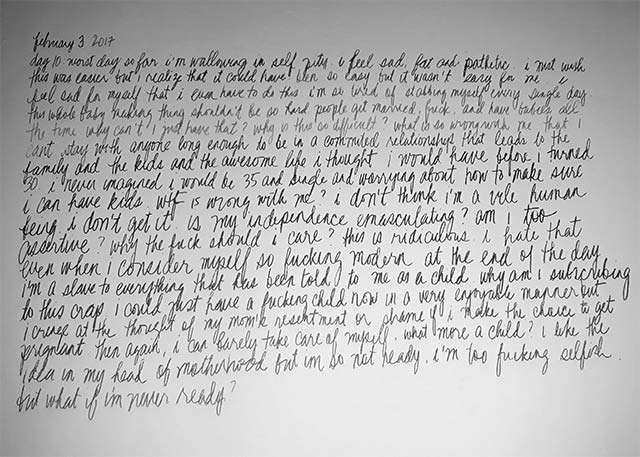 february 3 2017
day 10. worst day so far. i'm wallowing in self pity. i feel sad, fat and pathetic. i just wish
this was easier but i realize that it could have been so easy but it wasn't easy for me. i
feel sad for myself that i even have to do this. i'm so tired of stabbing myself every single day.
this whole baby making thing shouldn't be so hard. people get married, fuck, and have babies all
the time. why can't i just have that? why is this so difficult? what is so wrong with me that i
can't stay with anyone long enough to be in a committed relationship that leads to the
family and the kids and the awesome life i thought i would have before i turned
30. i never imagined i would be 35 and single and worrying about how to make sure
i can have kids. wtf is wrong with me? i don't think i'm a vile human
being. i don't get it. is my independence emasculating? am i too
assertive? why the fuck should i care? this is ridiculous. i hate that
even when i consider myself so fucking modern at the end of the day
i'm a slave to everything that has been told to me as a child. why am i subscribing
to this crap. i could just have a fucking child now in a very enjoyable manner but
i cringe at the thought of my mom's resentment or shame if i make the choice to get
pregnant. then again, i can barely take care of myself. what more a child? i like the
idea in my head of motherhood but im so not ready. i'm too fucking selfish.
but what if i'm never ready?